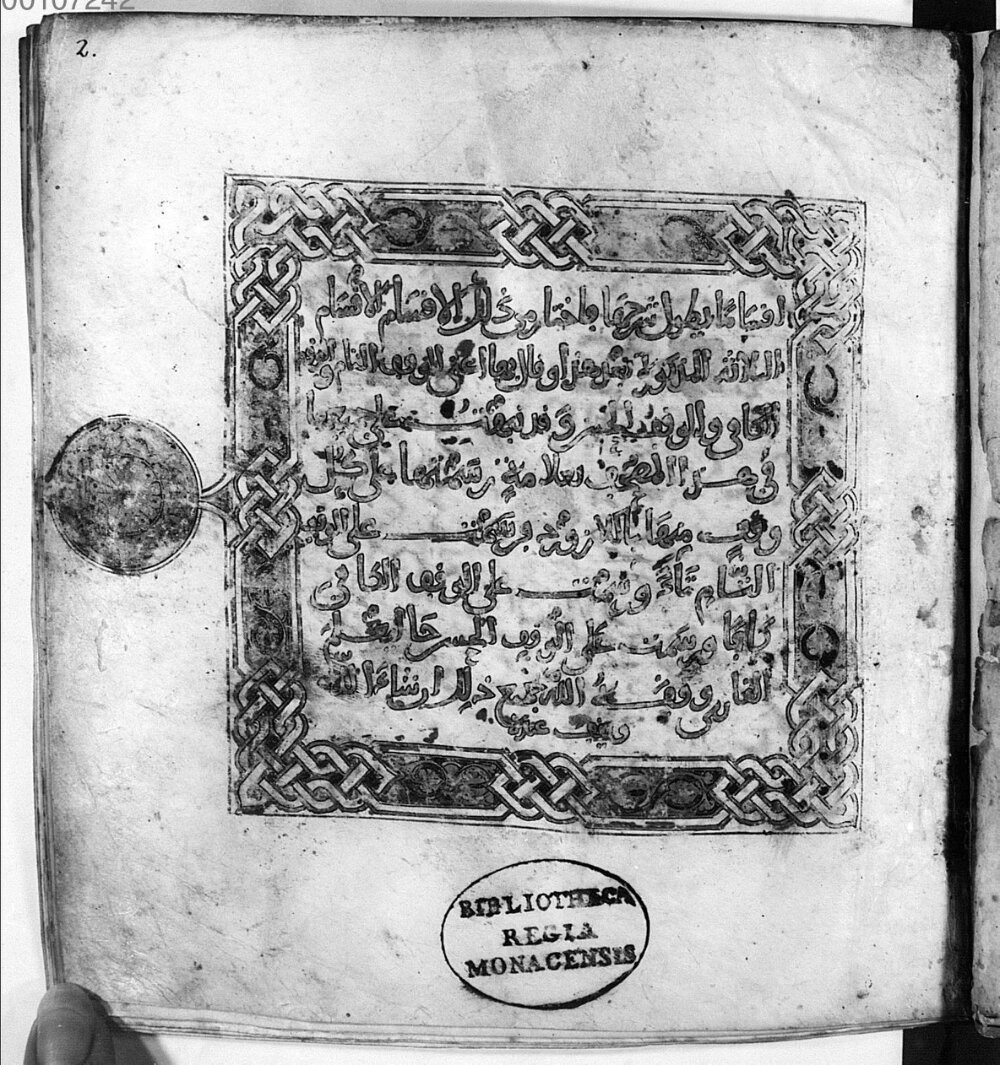 00107242
2.
اقساما يطول شرحها فاختار من تلك الاقسام الاقسام
الثلاثة المذكورة بعد هذا وقال بها اعني الوقف التام والوقف
الكافي والوقف الحسن وقد نبهت على جميعها
في هذا المصحف بعلامة رسمتها على كل
وقف منها باللازورد فرسمت على الوقف
التام تاء ورسمت على الوقف الكافي
كافا ورسمت على الوقف الحسن حاء
القارئ وقف الله جميع ذلك ان شاء الله
BIBLIOTHECA
REGIA
MONACENSIS